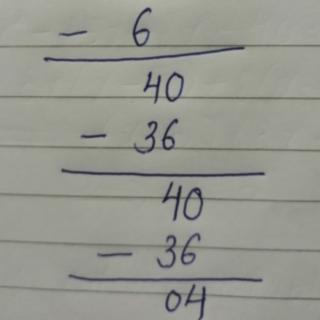 - 6
40
- 36
40
- 36
04